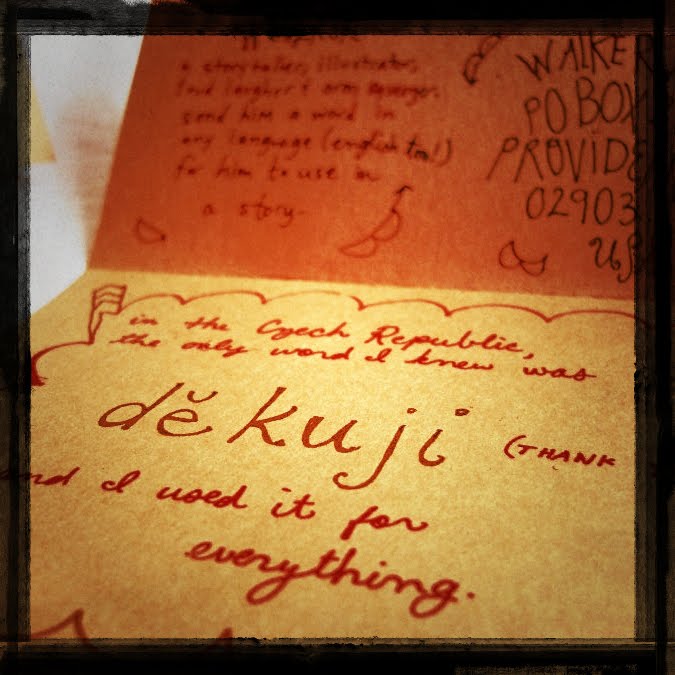 a storyteller, illustrator,
loud laugher & arm
send him a word in
any language (english too!)
for him to use in
a story.
WALKE
PO BOX
PROVIDE
02903
US
in the Czech Republic,
the only word I knew was
děkuji (THANK
nd I used it for
everything.